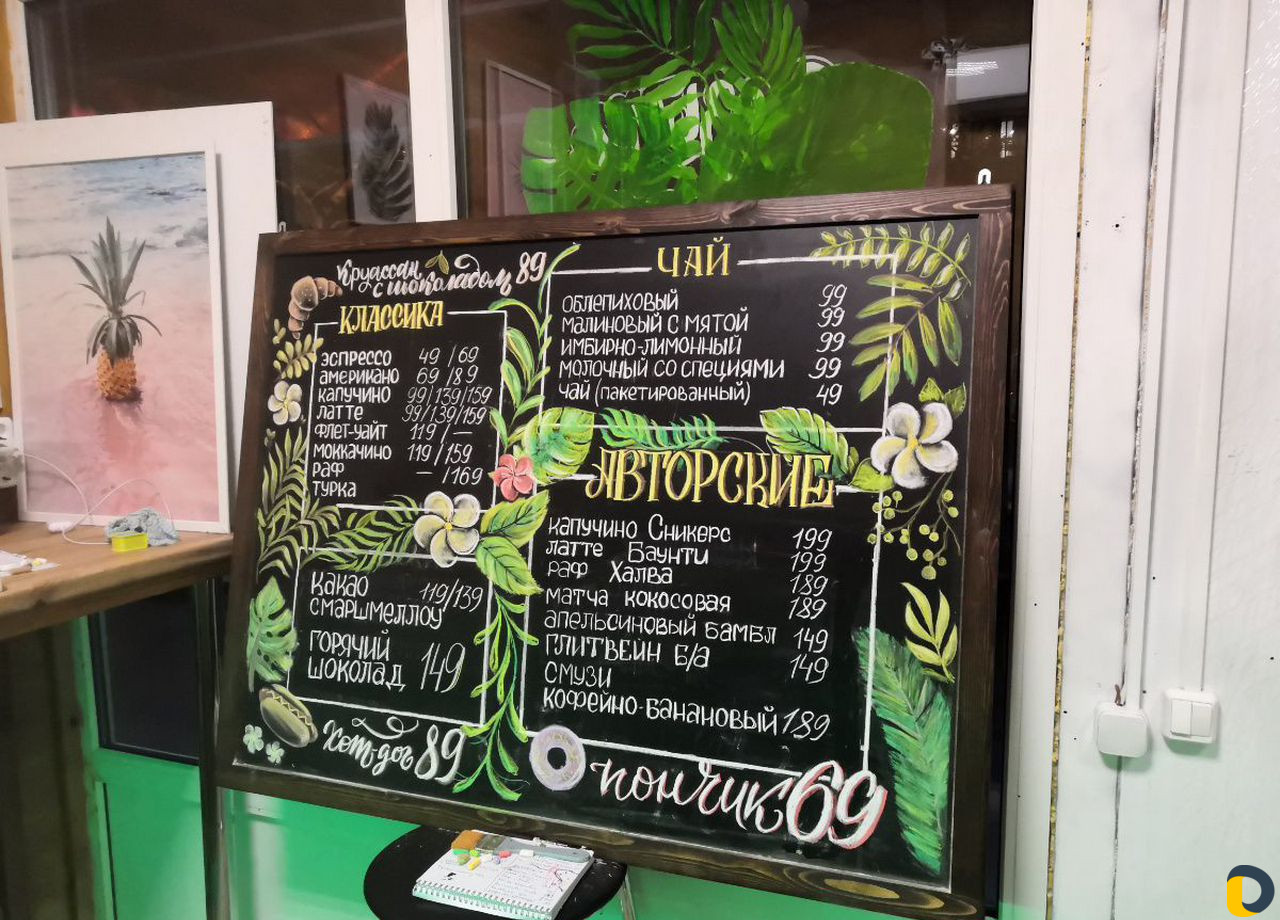 Круассан
с шоколадом 89
КЛАССИКА
эспрессо 49 / 69
американо 69 / 89
капучино 99/139/159
латте 99/139/159
флет-уайт 119 / —
моккачино 119 / 159
раф — / 169
турка
какао 119/139
с маршмеллоу
горячий
шоколад 149
Хот-дог 89
ЧАЙ
облепиховый 99
малиновый с мятой 99
имбирно-лимонный 99
молочный со специями 99
чай (пакетированный) 49
АВТОРСКИЕ
капучино Сникерс 199
латте Баунти 199
раф Халва 189
матча кокосовая 189
апельсиновый бамбл 149
глитвейн б/а 149
смузи
кофейно-банановый 189
пончик 69